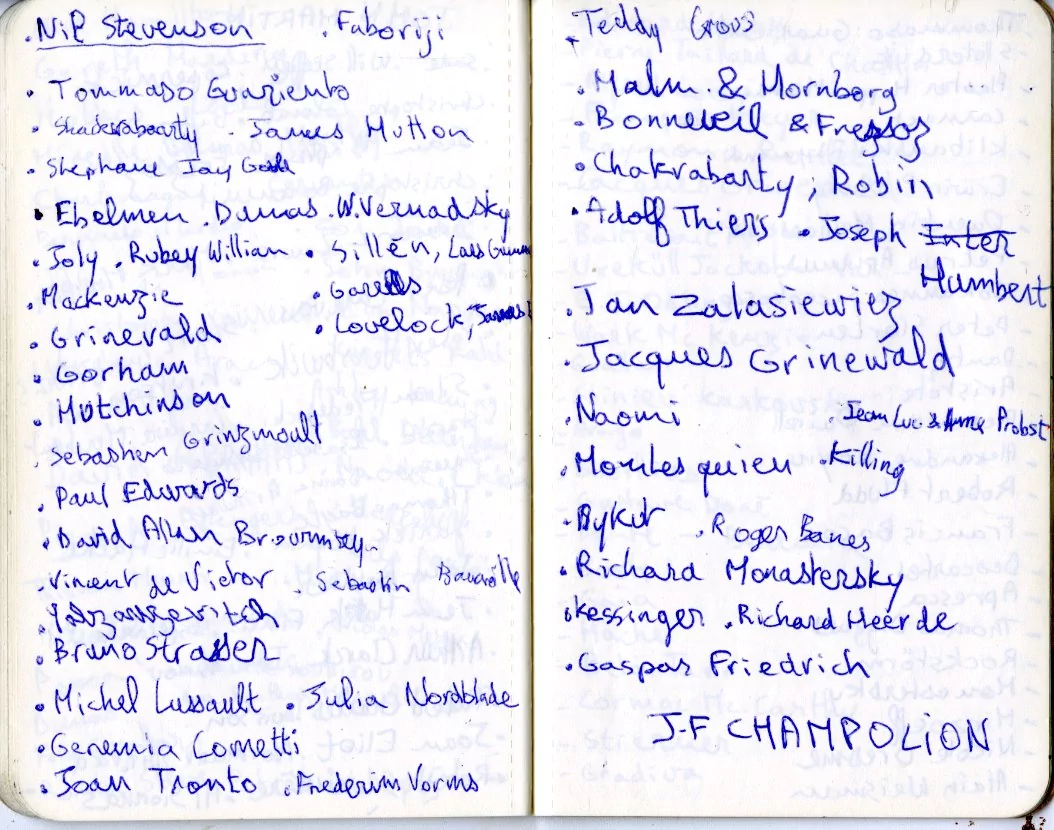 . Nil Stevenson . Faboriji
. Tommaso Guaziento
. James Hutton
. Stephane Jay Gould
. Ebelmen . Dumas . W. Vernadsky
. Joly . Rubey Willian . Sillén, Lars Gunnar
. Mackenzie . Garells
. Grinevald . Lovelock, James
. Gorham
. Hutchinson
. Sebastien Grinzmoult
. Paul Edwards
. David Allan
. Vincent de Victor . Sebastin
. Bruno Strasser
. Michel Lussault . Julia Nordblade
. Genemia Cometti
. Joan Tronto . Frederim Vorms
. Teddy
. Malm & Hornborg
. Bonneueil & Fressoz
. Chakrabarty ; Robin
. Adolf Thiers . Joseph Inter
Humbert
. Jan Zalasiewicz
. Jacques Grinewald
. Naomi . Jean Luc & Anne Probst
. Montesquieu . Killing
. Bykur . Roger Banes
. Richard Monastersky
. Kessinger . Richard Heerde
. Gaspar Friedrich
J-F CHAMPOLION